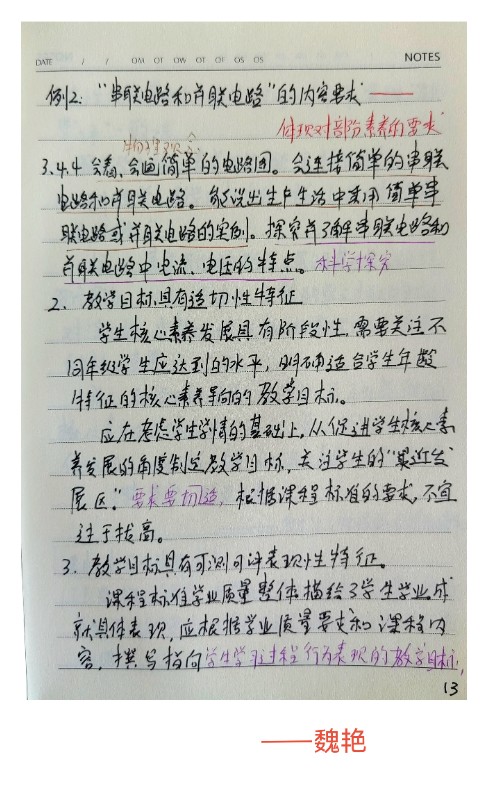 DATE / / MO TU WE TH FR SA SU NOTES
例2："串联电路和并联电路"的内容要求——
体现对部分素养的要求
物理观念
3.4.4 会看、会画简单的电路图。会连接简单的串联
电路和并联电路。能说出生产生活中采用简单串
联电路或并联电路的实例。探究并了解串联电路和
并联电路中电流、电压的特点。科学探究
2、教学目标具有适切性特征
学生核心素养发展具有阶段性，需要关注不
同年级学生应达到的水平，明确适合学生年龄
特征的核心素养导向的教学目标。
应在考虑学生学情的基础上，从促进学生核心素
养发展的角度制定教学目标，关注学生的"最近发
展区"要求要切适，根据课程标准的要求，不宜
过于拔高。
3、教学目标具有可测可评表现性特征。
课程标准学业质量整体描绘了学生学业成
就具体表现，应根据学业质量要求和课程内
容，撰写指向学生学习过程行为表现的教学目标，
13
——魏艳